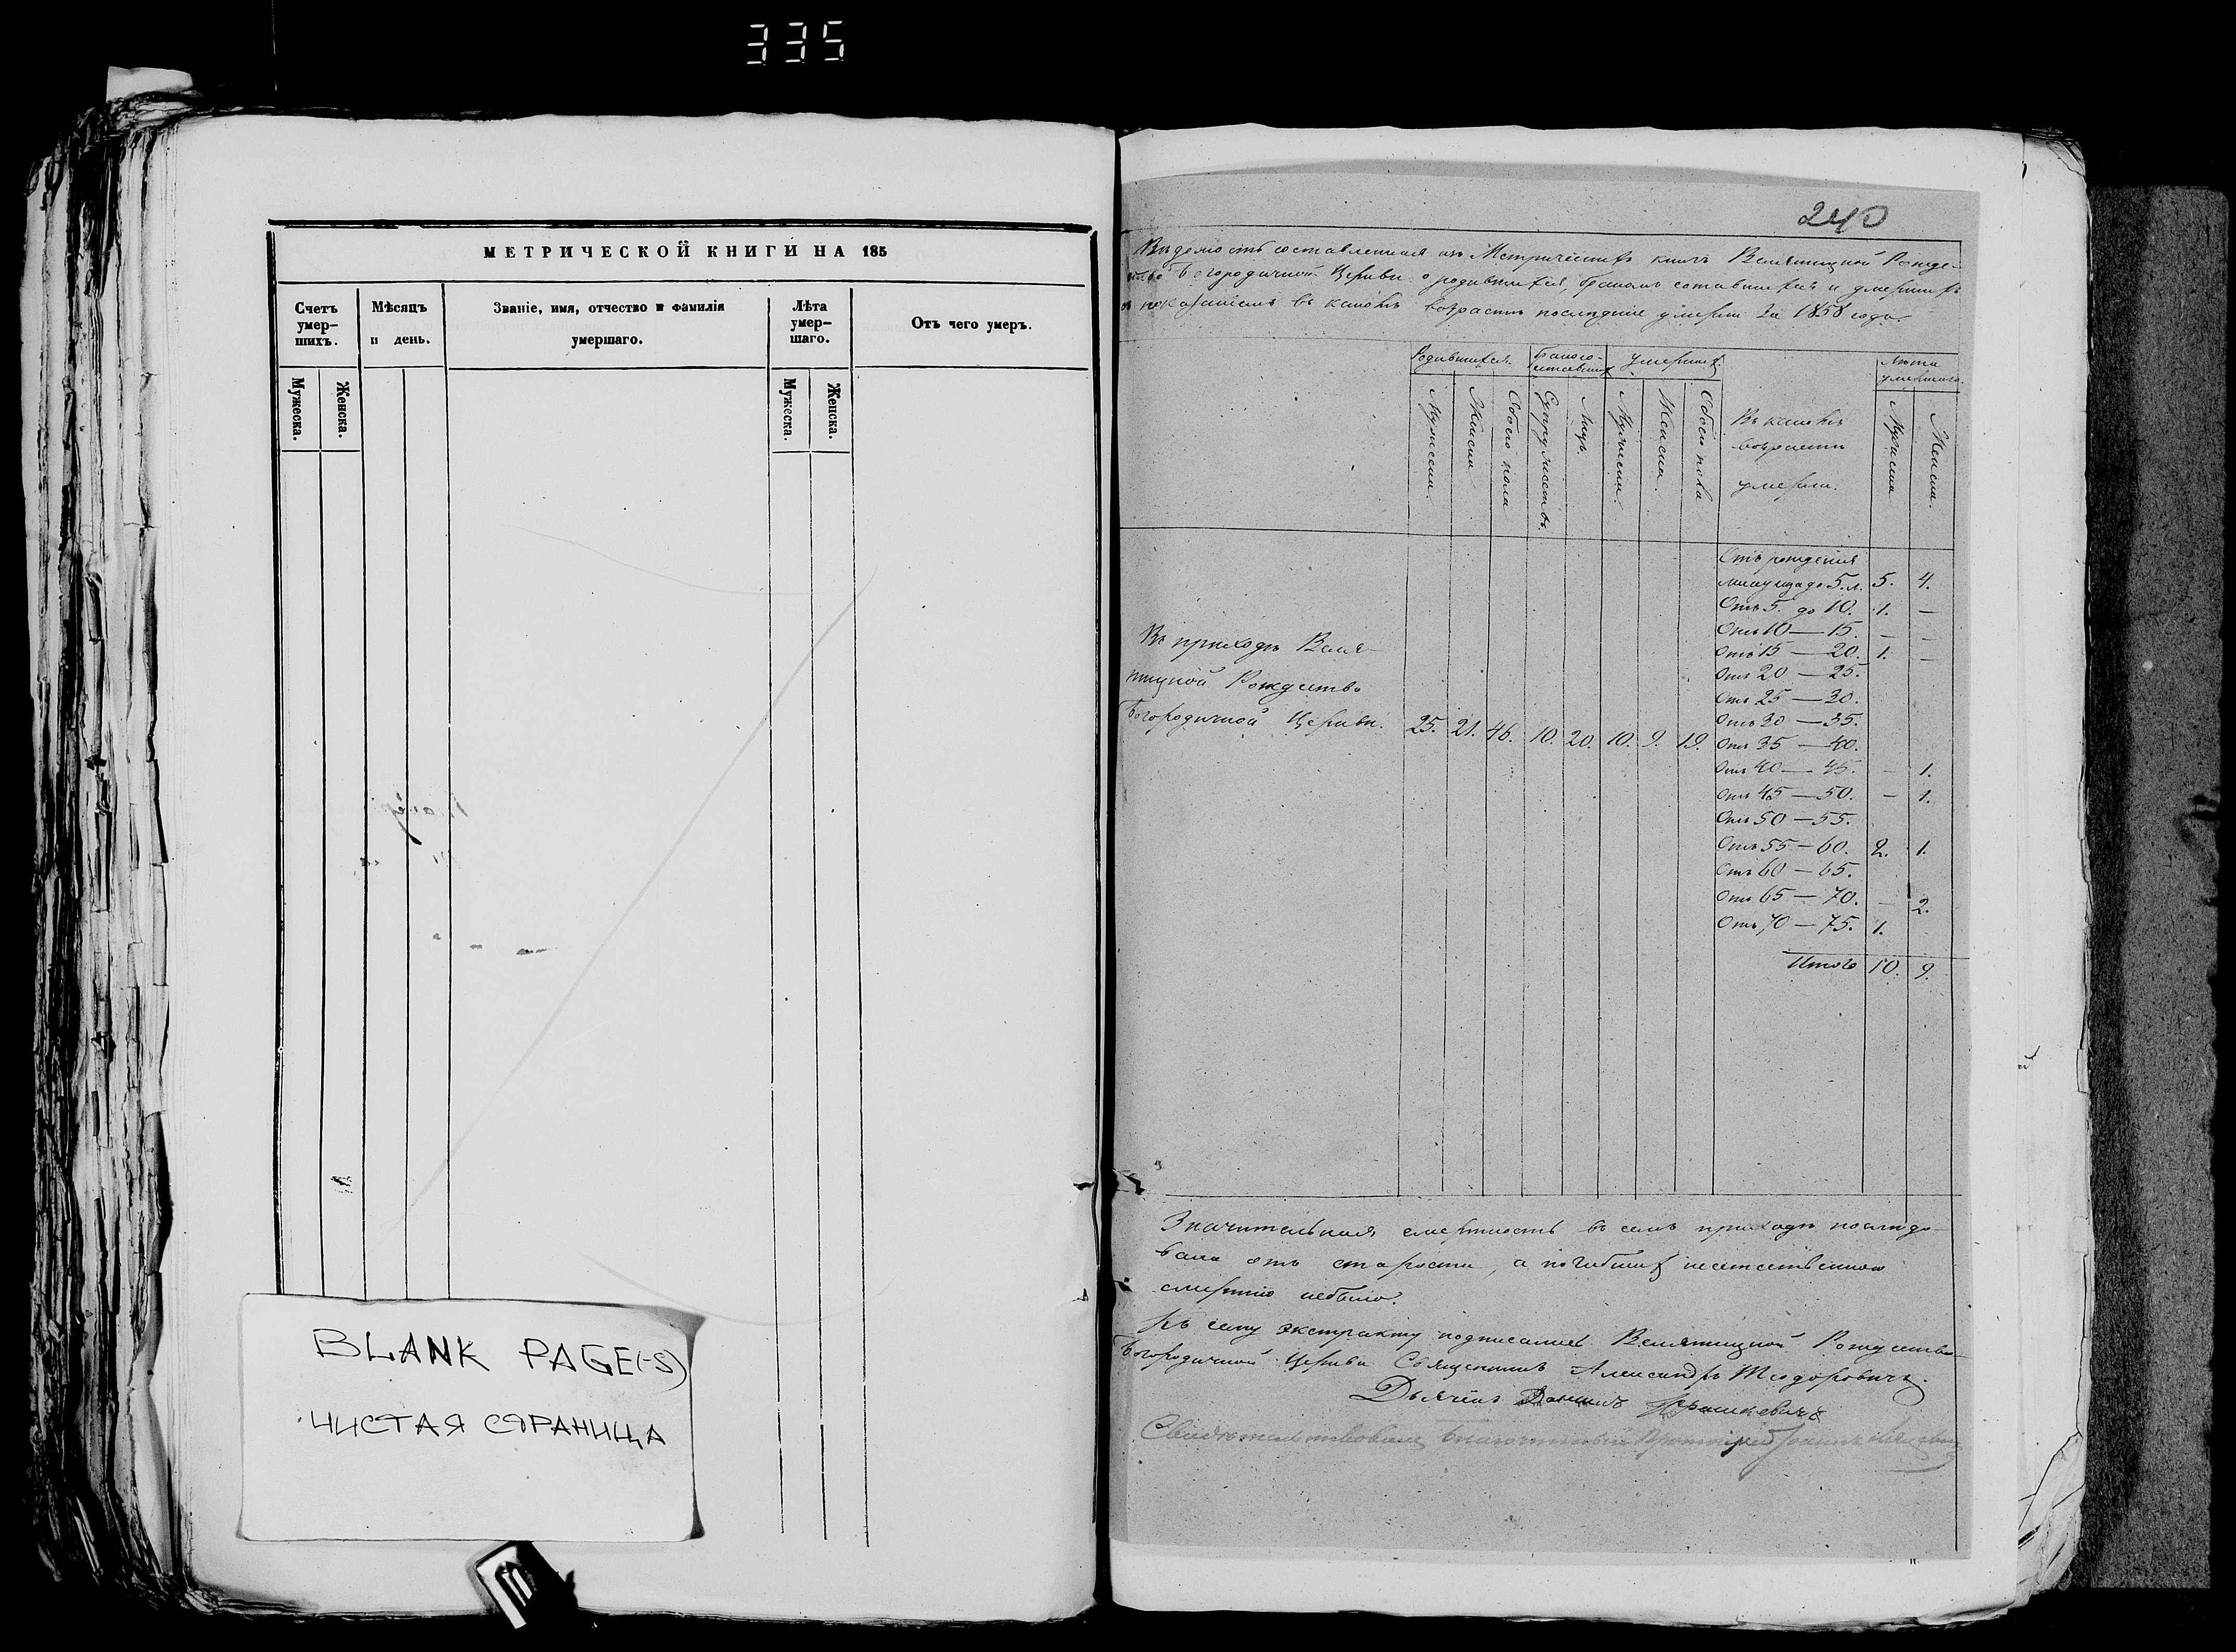 335
МЕТРИЧЕСКОЙ КНИГИ НА 185
Счетъ умер-
шихъ.
Мѣсяцъ
и день.
Званіе, имя, отчество и фамилія
умершаго.
Лѣта
умер-
шаго.
Отъ чего умеръ.
Мужеска.
Женска.
Мужеска.
Женска.
BLANK PAGE(-S)
ЧИСТАЯ СТРАНИЦА
240
Вѣдомость составленная изъ Метрическихъ книгъ Велятицкой Рожде-
ство Богородичной Церкви о родившихся, бракомъ сочетавшихся и умершихъ
показаніемъ въ какомъ возрастѣ послѣдніе умерли за 1858 годъ.
Родившихся.
умершихъ
Лѣта
умершаго.
Мужеска.
Женска
Обоего пола
Супружествъ.
Лицъ.
Мужеска
Женска.
Обоего пола
Въ какомъ
возрастѣ
умерли.
Мужеска
Женска.
Въ приходѣ Веля-
тицкой Рождество
Богородичной Церкви. 25. 21. 46. 10. 20. 10. 9. 19.
Отъ рожденія
младенца до 5. л. 5. 4.
Отъ 5. до 10. 1. —
Отъ 10 — 15. — —
Отъ 15 — 20. 1. —
Отъ 20 — 25.
Отъ 25 — 30.
Отъ 30 — 35.
Отъ 35 — 40.
Отъ 40 — 45. — 1.
Отъ 45 — 50. — 1.
Отъ 50 — 55.
Отъ 55 — 60. 2. 1.
Отъ 60 — 65.
Отъ 65 — 70. — 2.
Отъ 70 — 75. 1.
Итого 10. 9.
Значительная смертность въ семъ приходѣ послѣдо-
вала отъ старости, а погибшихъ неестественною
смертію небыло.
Къ сему экстракту подписались Велятицкой Рождество-
Богородичной Церкви Священникъ Александръ Теодоровичъ.
Дьячекъ Даніилъ
Свидѣтельствовалъ Благочинный Протоіерей Іоаннъ